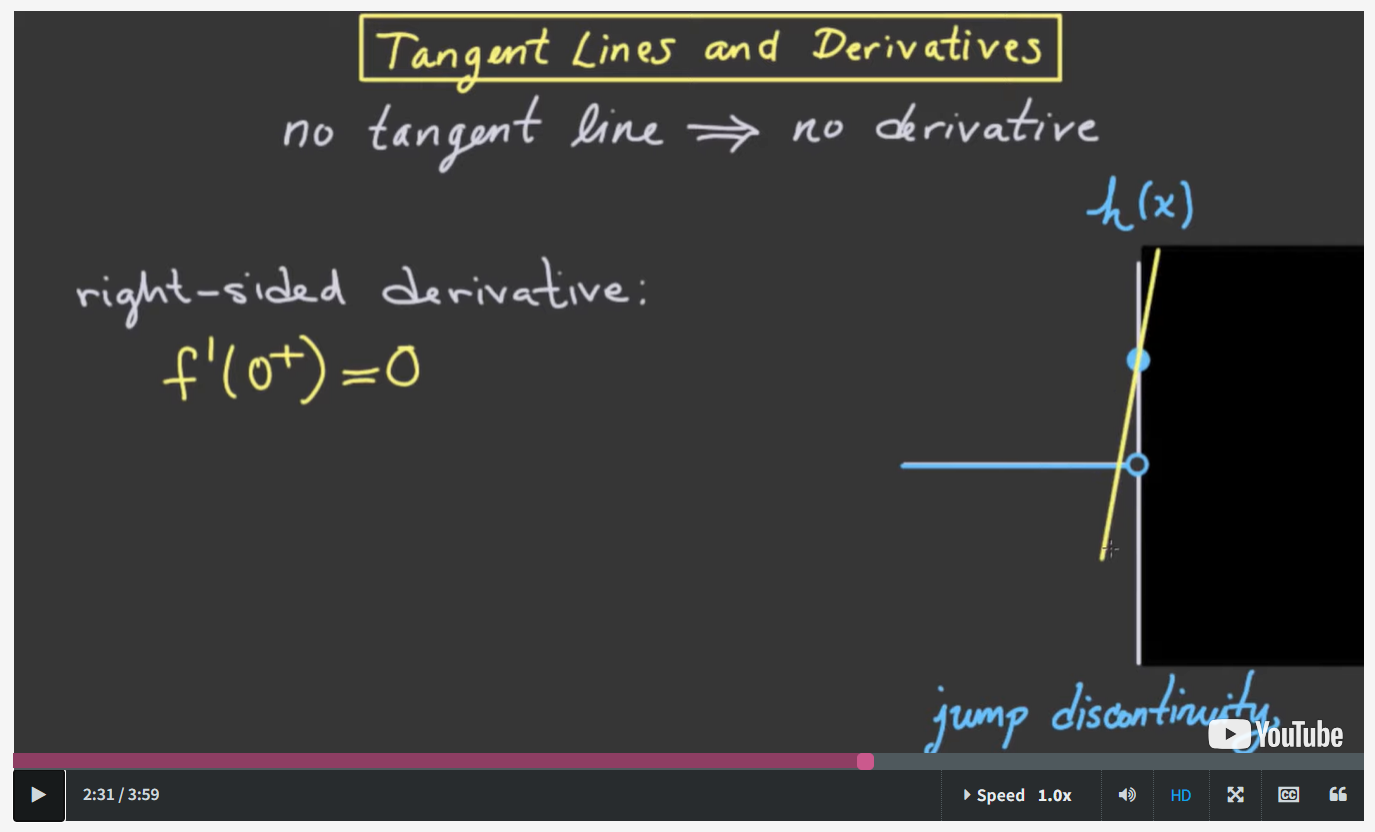 Tangent Lines and Derivatives
no tangent line ⇒ no derivative
h(x)
right-sided derivative:
f'(0⁺) = 0
jump discontinuity,
YouTube
2:31 / 3:59
Speed 1.0x
HD
CC